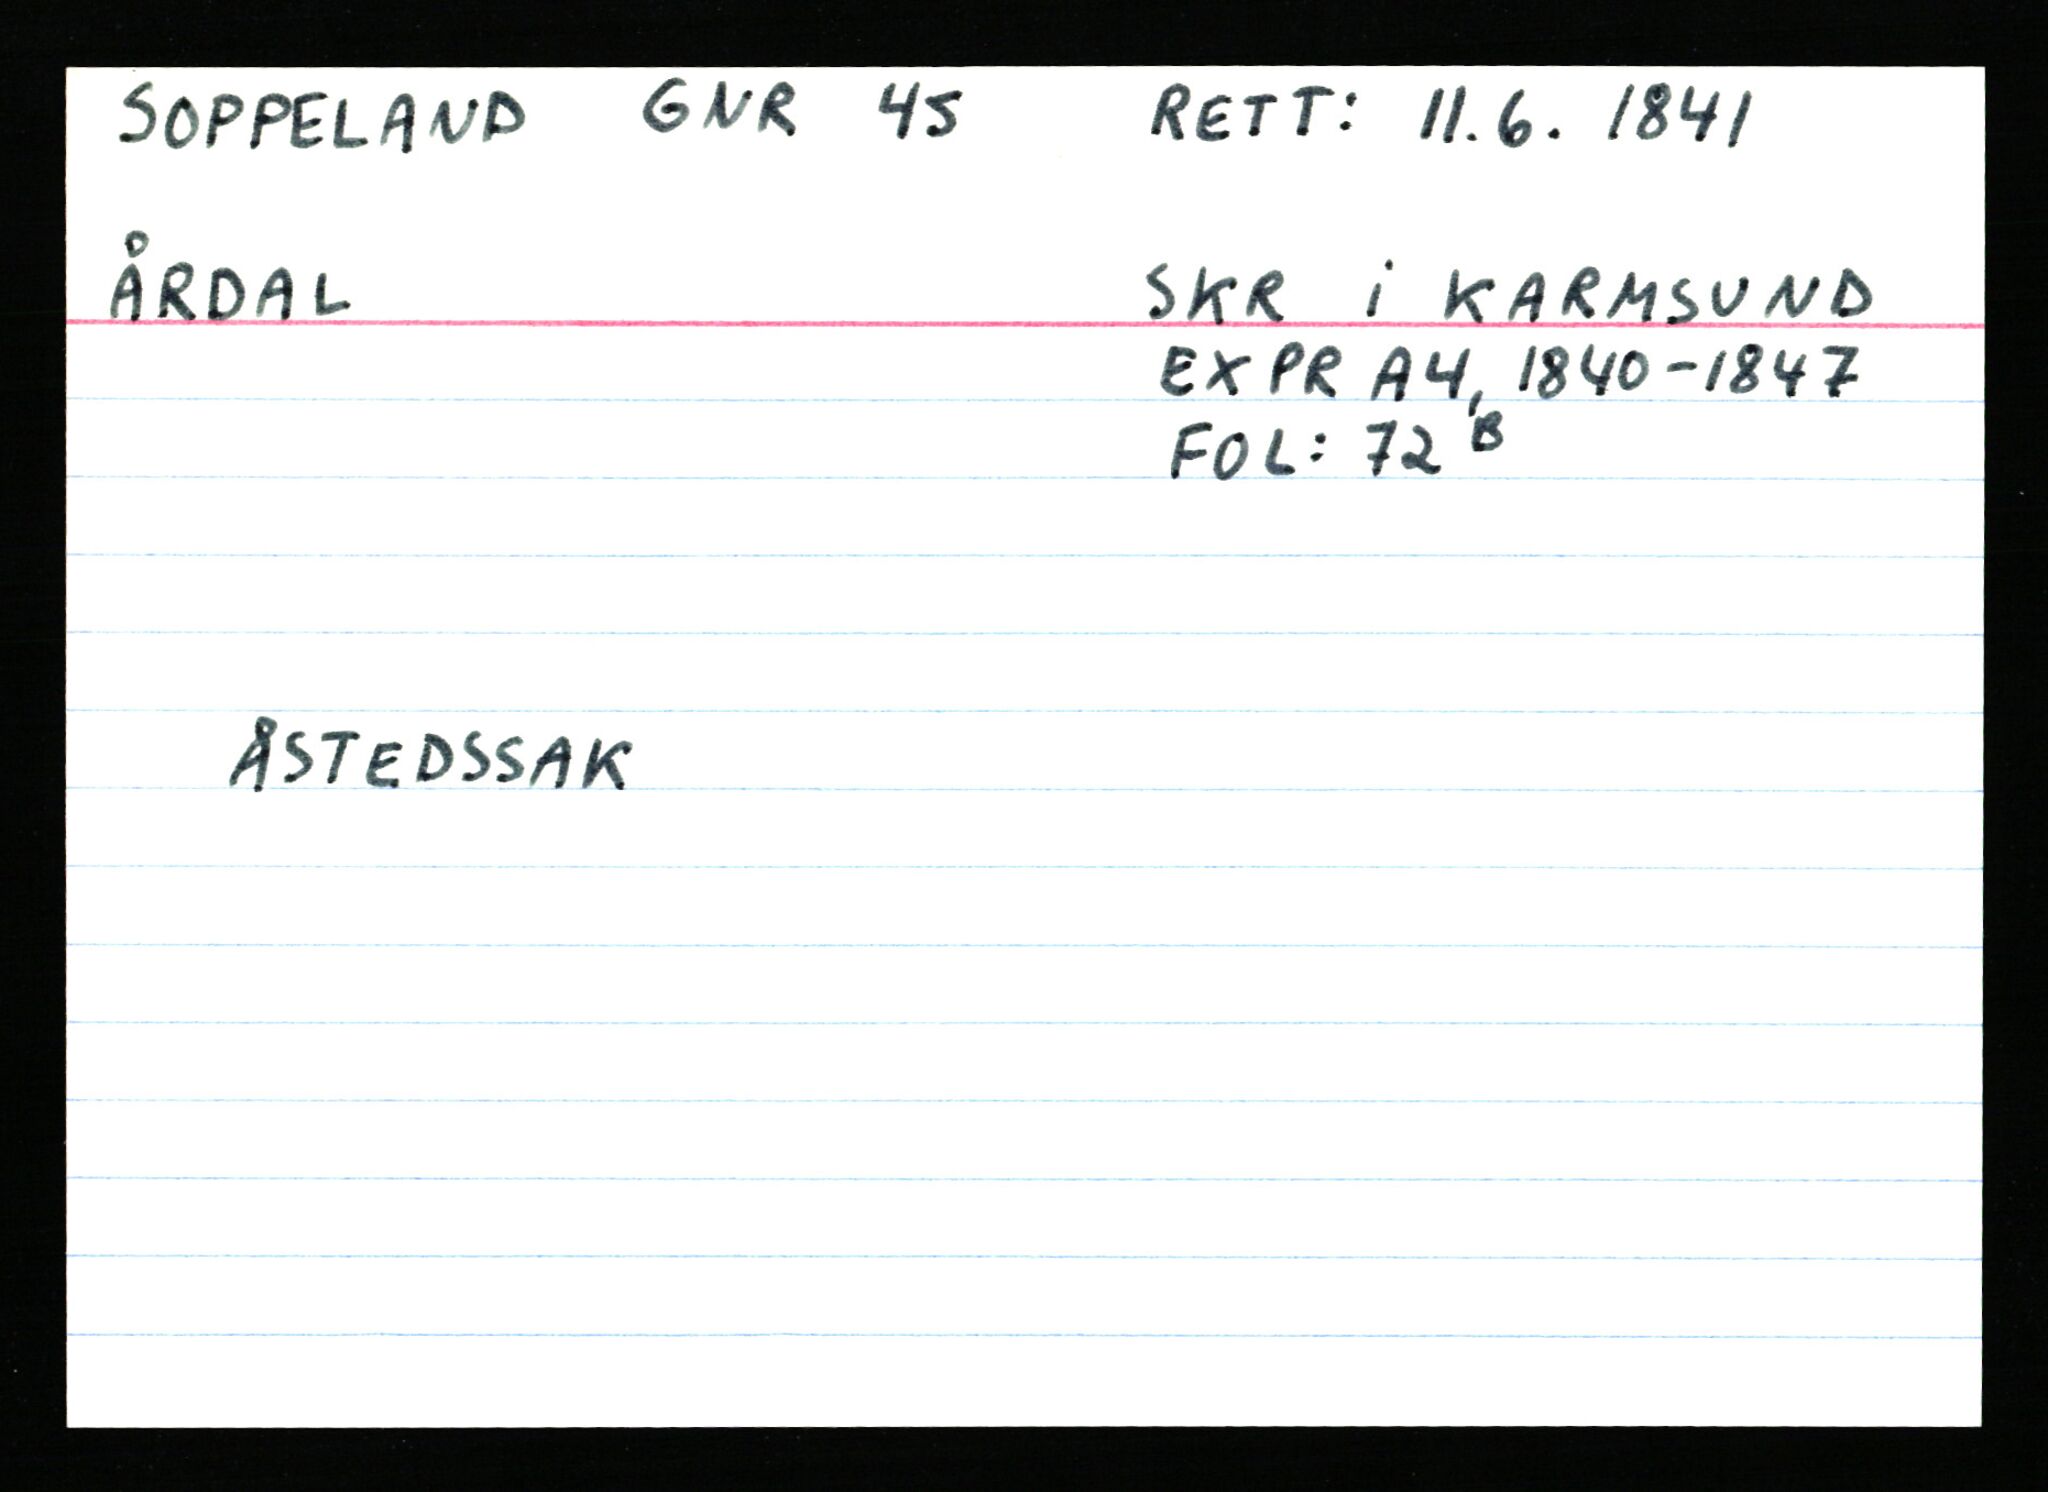 SOPPELAND GNR 45 RETT: 11.6. 1841
ÅRDAL SKR i KARMSUND
EXPR A4, 1840-1847
FOL: 72 B
ÅSTEDSSAK